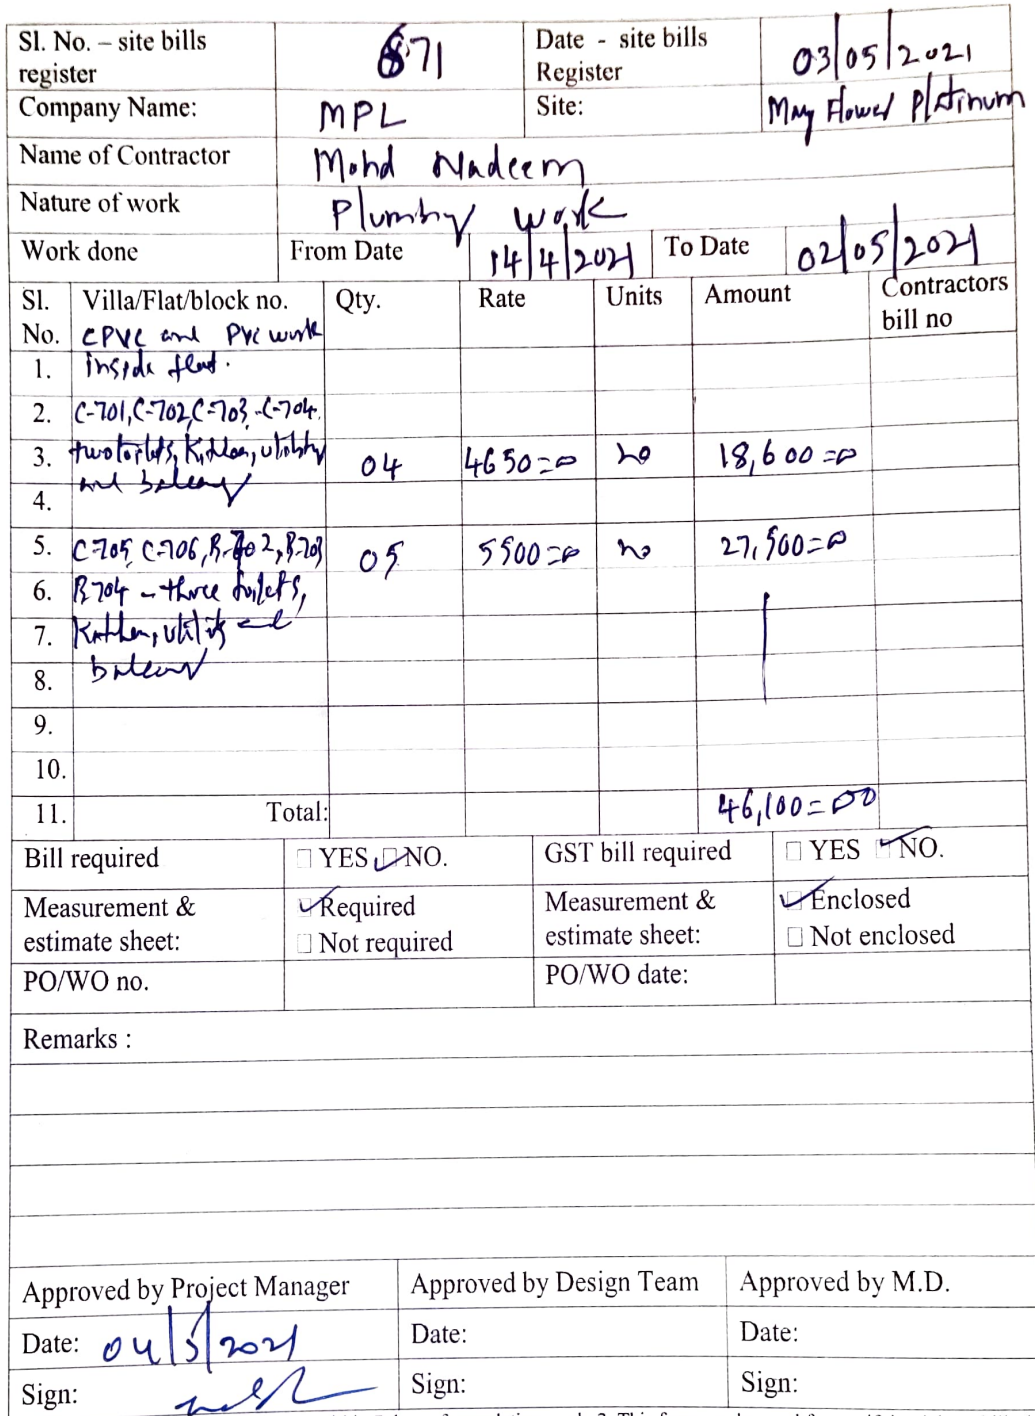 Sl. No. – site bills register 871 Date - site bills Register 03/05/2021
Company Name: MPL Site: May Flower Platinum
Name of Contractor Mohd Nadeem
Nature of work Plumbing work
Work done From Date 14/4/2021 To Date 02/05/2021
Sl. No. Villa/Flat/block no. Qty. Rate Units Amount Contractors bill no
CPVC and PVC work
1. inside flat.
2. C-701, C-702, C-703, C-704
3. two toilets, Kitchen, utility 04 4650=00 no 18,600=00
and balcony
4.
5. C-705, C-706, B-702, B-703 05 5500=00 no 27,500=00
6. B-704 - three toilets,
7. Kitchen, utility and
8. balcony
9.
10.
11. Total: 46,100=00
Bill required YES NO. GST bill required YES NO.
Measurement & estimate sheet: Required Not required Measurement & estimate sheet: Enclosed Not enclosed
PO/WO no. PO/WO date:
Remarks :
Approved by Project Manager Approved by Design Team Approved by M.D.
Date: 04/5/2021 Date: Date:
Sign: Sign: Sign: